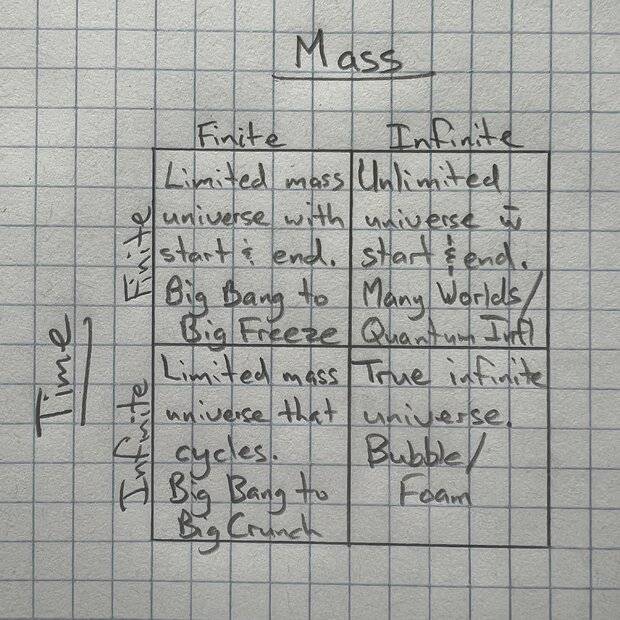 Mass
Finite
Infinite
Time
Finite
Limited mass
universe with
start & end.
Big Bang to
Big Freeze
Unlimited
universe w̄
start & end.
Many Worlds/
Quantum Infl
Infinite
Limited mass
universe that
cycles.
Big Bang to
Big Crunch
True infinite
universe.
Bubble/
Foam